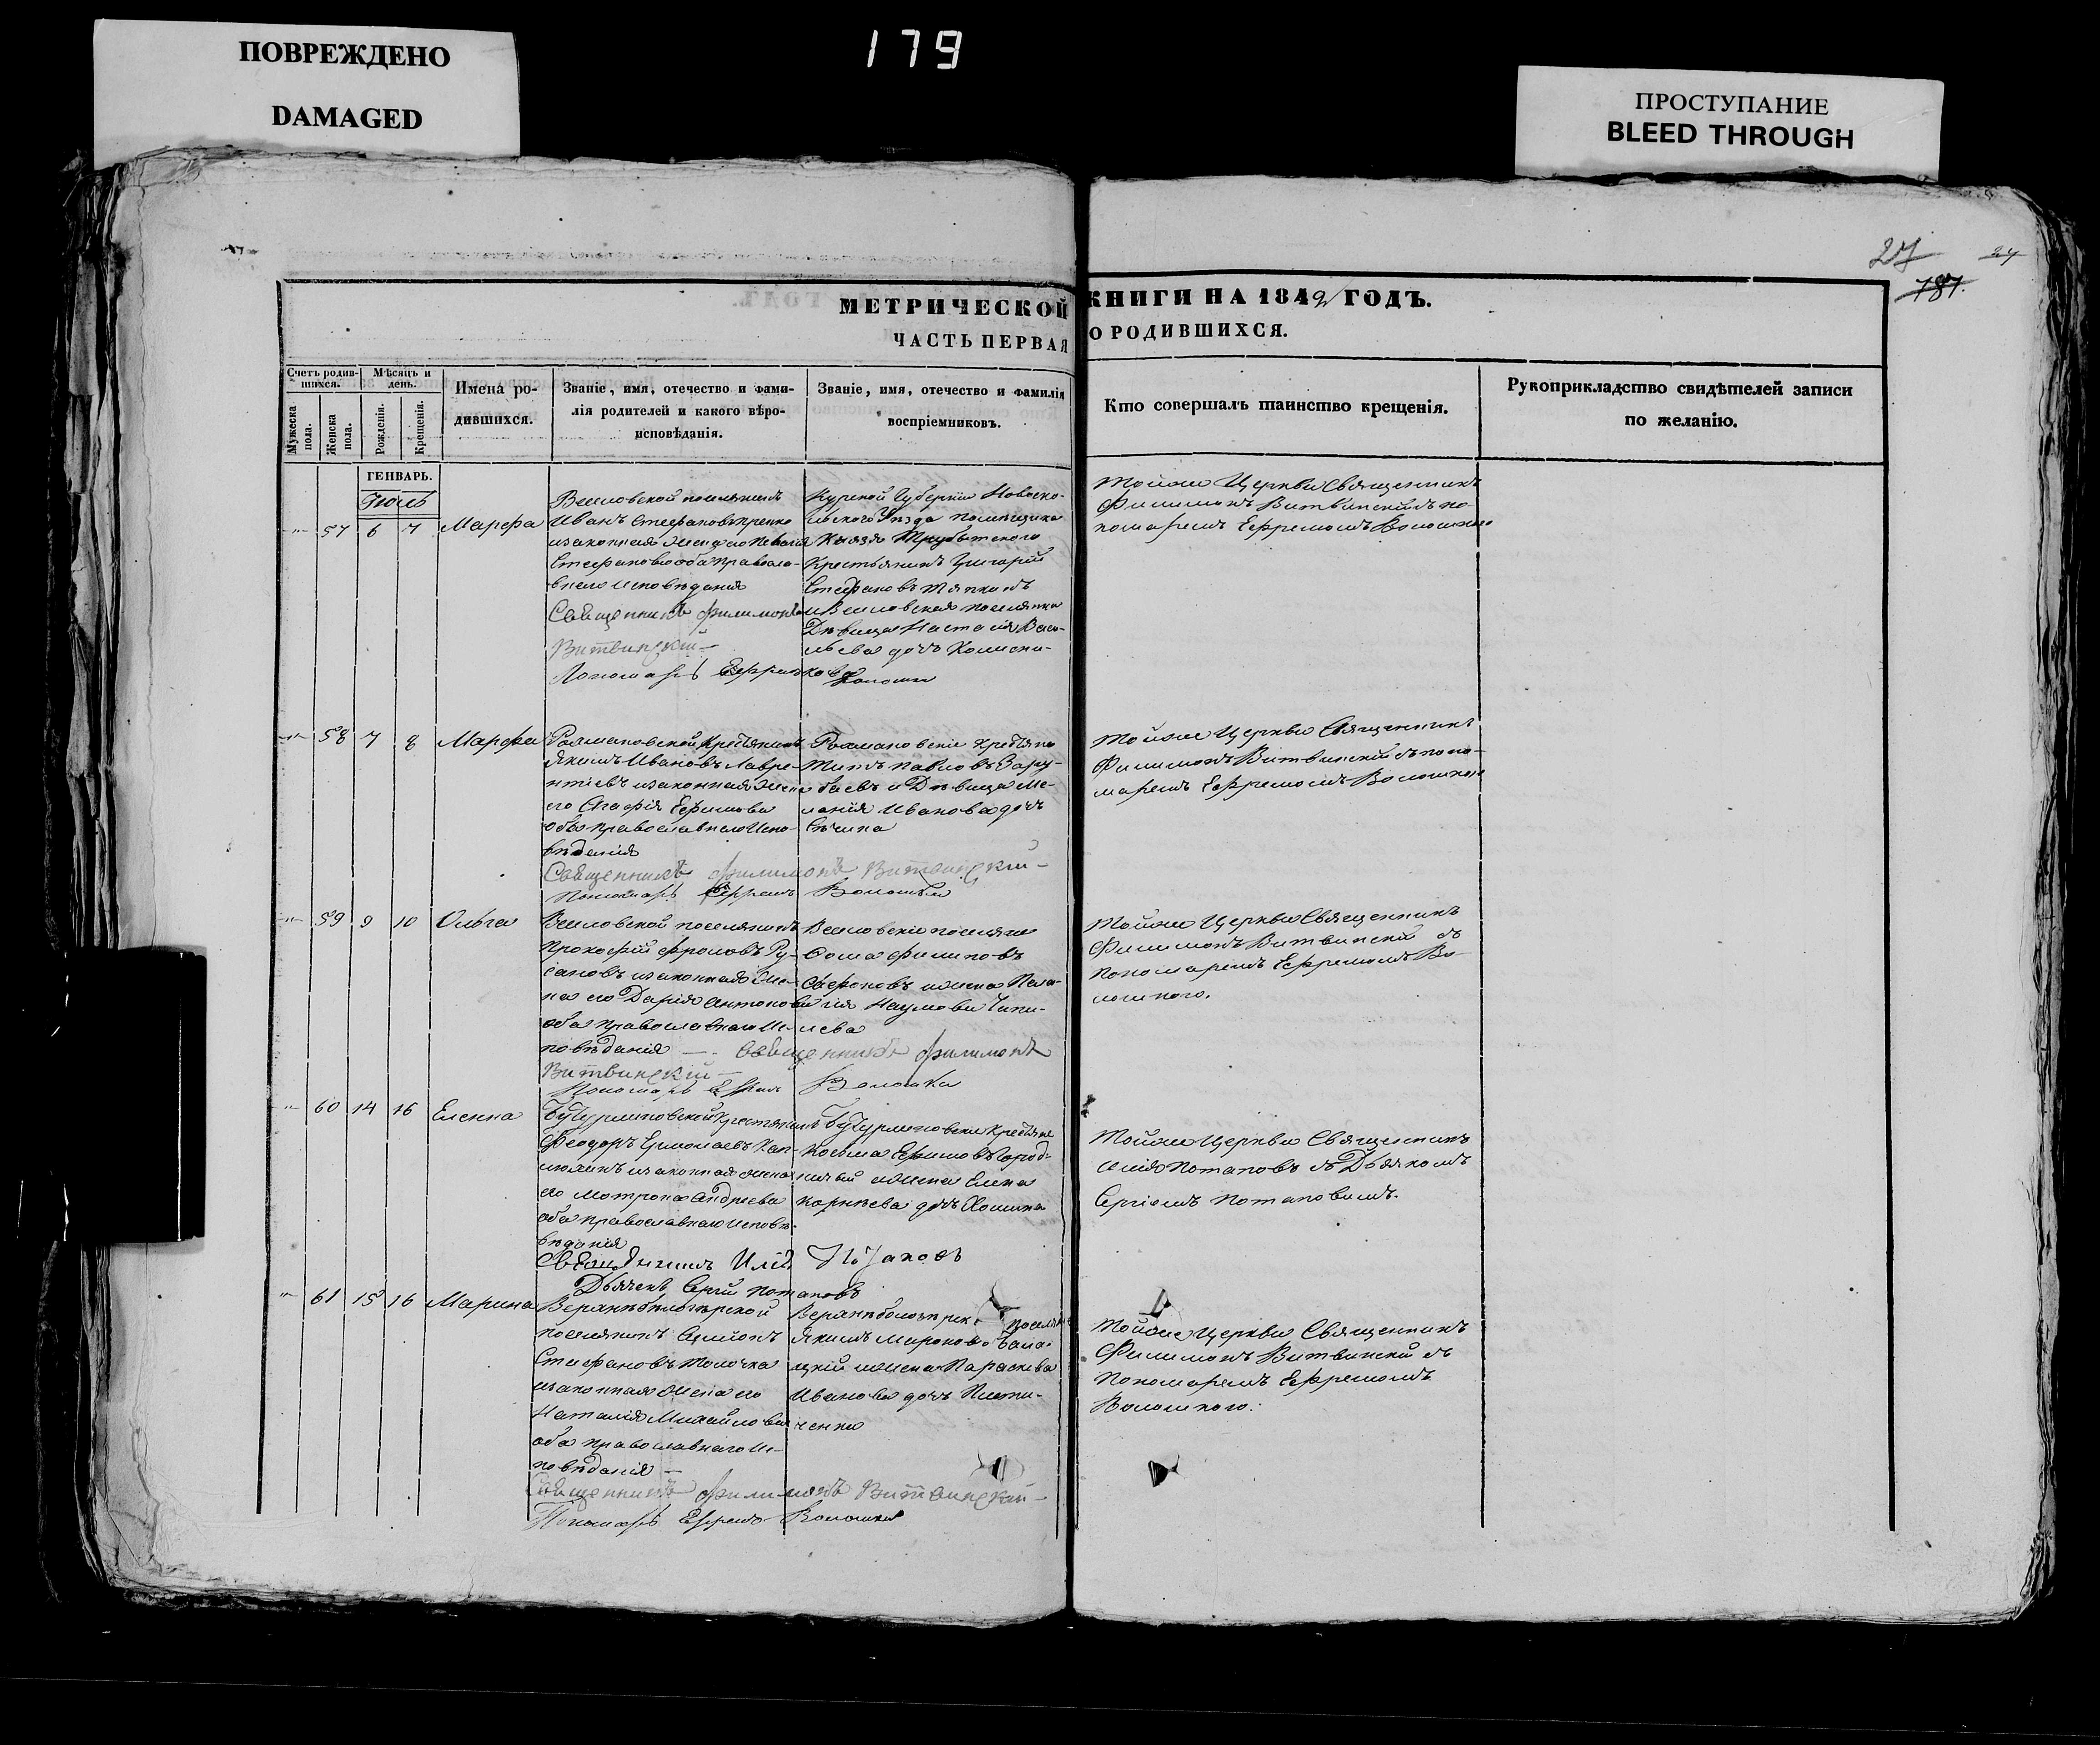 ПОВРЕЖДЕНО
DAMAGED
179
ПРОСТУПАНИЕ
BLEED THROUGH
27
24
181.
МЕТРИЧЕСКОЙ КНИГИ НА 1842 ГОДЪ.
ЧАСТЬ ПЕРВАЯ О РОДИВШИХСЯ.
Счетъ родив-
шихся.
Мужеска
пола.
Женска
пола.
Мѣсяцъ и
день.
Рожденія.
Крещенія.
Имена ро-
дившихся.
Званіе, имя, отечество и фами-
лія родителей и какого вѣро-
исповѣданія.
Званіе, имя, отечество и фамилія
воспріемниковъ.
Кто совершалъ таинство крещенія.
Рукоприкладство свидѣтелей записи
по желанію.
ГЕНВАРЬ.
57 6 7 Марфа
Веиловской поселянинъ
Иванъ Стефановъ
изаконная жена его
Стефанова оба правосла-
внаго исповѣданія
Священникъ Филимонъ
Витвинскій
Пономарь Ефремъ
Курской Губерніи Новоско-
льского Уѣзда помещика
Князя Трубетского
Крестьянинъ Григорій
Стефановъ
и Веиловская поселянка
Дѣвица Настасія Васи-
льева дочь
Тойже Церкви Священникъ
Филимонъ Витвинскій съ по-
номаремъ Ефремомъ Волошкого
58 7 8 Марфа
Крестьянинъ
Якимъ Ивановъ Лавре-
нтіевъ изаконная жена
его Агафія Ефимова
оба православнаго испо-
вѣданія
Священникъ Филимонъ Витвинскій
Пономарь Ефремъ Волошка
крестьяне
Титъ Павловъ Зару-
баевъ и Дѣвица Ме-
ланія Иванова дочь
Тойже Церкви Священникъ
Филимонъ Витвинскій съ поно-
маремъ Ефремомъ Волошкого
59 9 10 Ольга
Веиловской поселянинъ
Прокофій Фроловъ Ру-
сановъ изаконная же-
на его Дарія Антонова
оба православнаго Ис-
повѣданія — Священникъ Филимонъ
Витвинскій
Пономарь Ефремъ Волошка
Веиловскіе поселяне
Фома Филиповъ
Сафоновъ ижена Пела-
гія Наумова Чипи-
лева
Тойже Церкви Священникъ
Филимонъ Витвинскій съ
пономаремъ Ефремомъ Во-
лошкого.
60 14 16 Еленна
Бутурлиновской Крестьянинъ
Феодоръ Ермолаевъ
изаконная жена
его Матрона Андреева
оба православнаго исповѣ-
вѣданія
Священникъ Илія Потаповъ
Дьячекъ Сергій Потаповъ
Бутурлиновскіе Крестьяне
Косьма Ефимовъ
ижена Елена
Корнѣева дочь
Тойже Церкви Священникъ
Илія Потаповъ съ Дьячкомъ
Сергіемъ Потаповымъ.
61 15 16 Марина
поселянинъ Симіонъ
Стефановъ Толочка
изаконная жена его
Наталія Михайлова
оба православнаго Ис-
повѣданія —
Священникъ Филимонъ Витвинскій
Пономарь Ефремъ Волошка
поселяне
Якимъ Мироновъ
ижена Параскева
Иванова дочь
Тойже Церкви Священникъ
Филимонъ Витвинскій съ
Пономаремъ Ефремомъ
Волошкого.